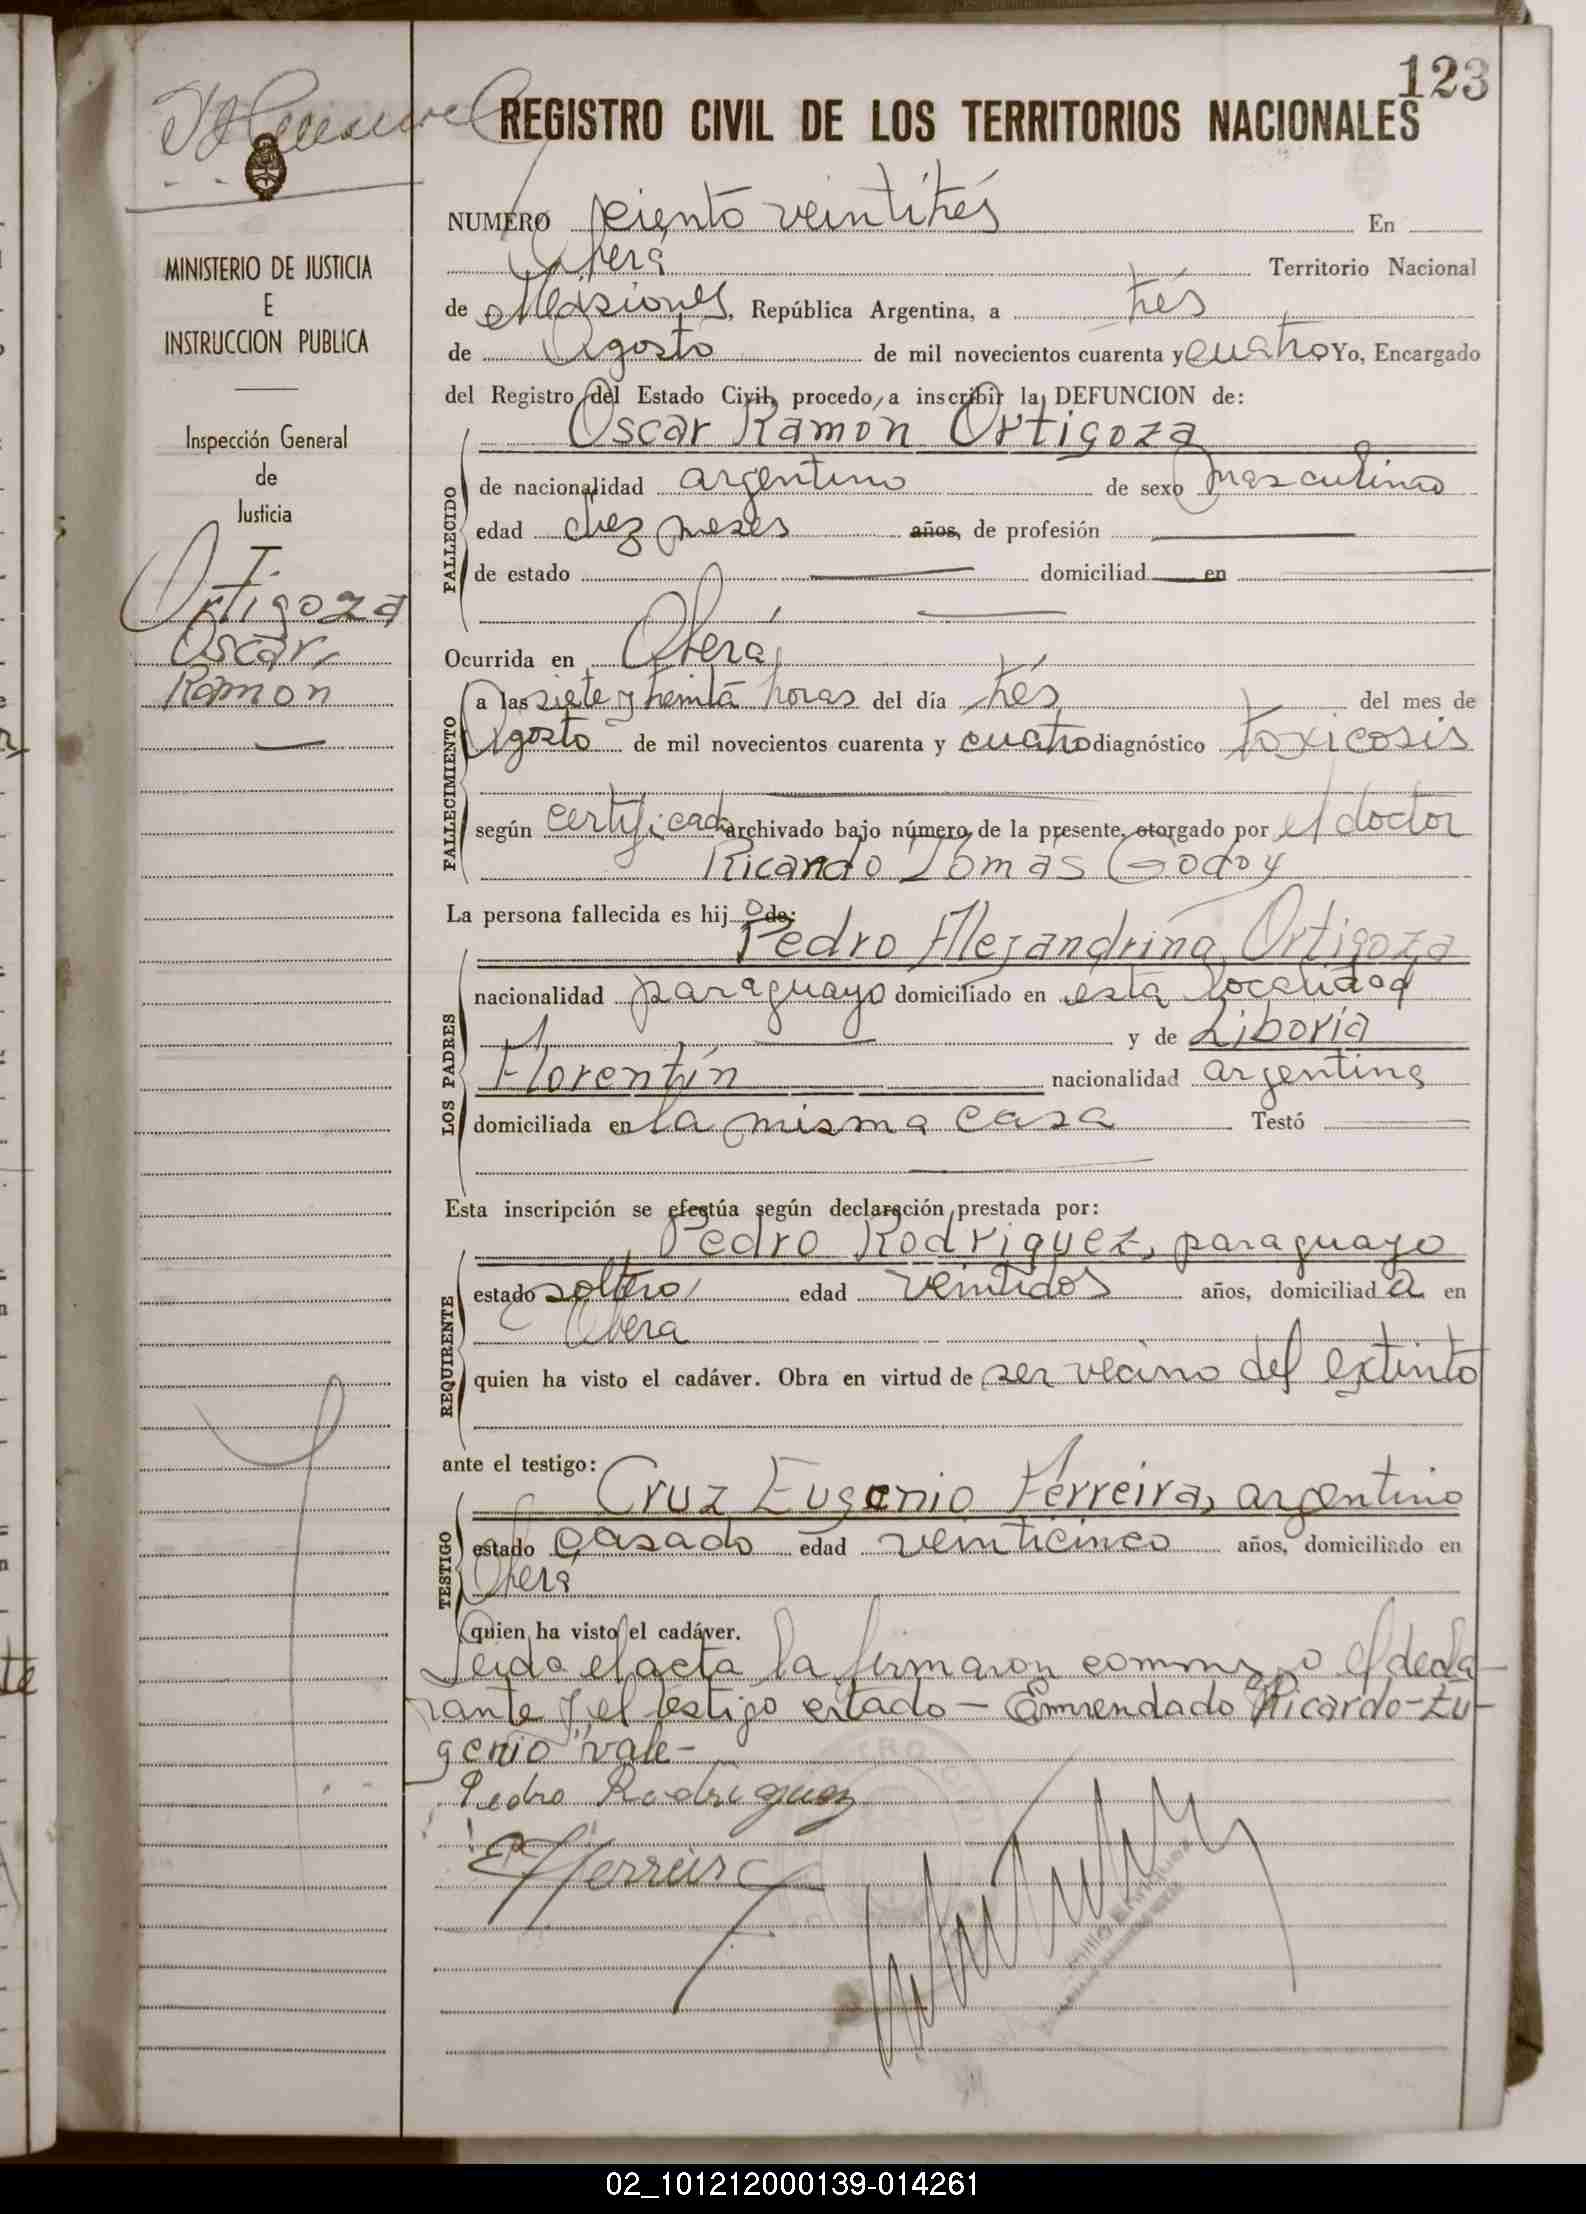 123
REGISTRO CIVIL DE LOS TERRITORIOS NACIONALES
MINISTERIO DE JUSTICIA
E
INSTRUCCION PUBLICA
Inspección General
de
Justicia
Ortigoza
Oscar,
Ramón
NUMERO ciento veintitrés En
Oberá Territorio Nacional
de Misiones, República Argentina, a trés
de Agosto de mil novecientos cuarenta y cuatro Yo, Encargado
del Registro del Estado Civil, procedo a inscribir la DEFUNCION de:
Oscar Ramón Ortigoza
FALLECIDO
de nacionalidad argentino de sexo masculino
edad diez meses años, de profesión
de estado domiciliad en
Ocurrida en Oberá,
FALLECIMIENTO
a las siete y treinta horas del día trés del mes de
Agosto de mil novecientos cuarenta y cuatro diagnóstico toxicosis
según certificado archivado bajo número de la presente, otorgado por el doctor
Ricardo Tomás Godoy
La persona fallecida es hij o de:
LOS PADRES
Pedro Alejandrino Ortigoza
nacionalidad paraguayo domiciliado en esta localidad
y de Liboria
Florentín nacionalidad argentina
domiciliada en la misma casa Testó
Esta inscripción se efectúa según declaración prestada por:
REQUIRENTE
Pedro Rodriguez, paraguayo
estado soltero, edad veintidos años, domiciliad a en
Oberá
quien ha visto el cadáver. Obra en virtud de ser vecino del extinto
ante el testigo:
TESTIGO
Cruz Eugenio Ferreira, argentino
estado casado edad veinticinco años, domiciliado en
Oberá
quien ha visto el cadáver.
Leida el acta la firmaron conmigo el decla-
rante y el testigo citado - Enmendado "Ricardo-Eu-
genio" vale-
Pedro Rodriguez
02_101212000139-014261